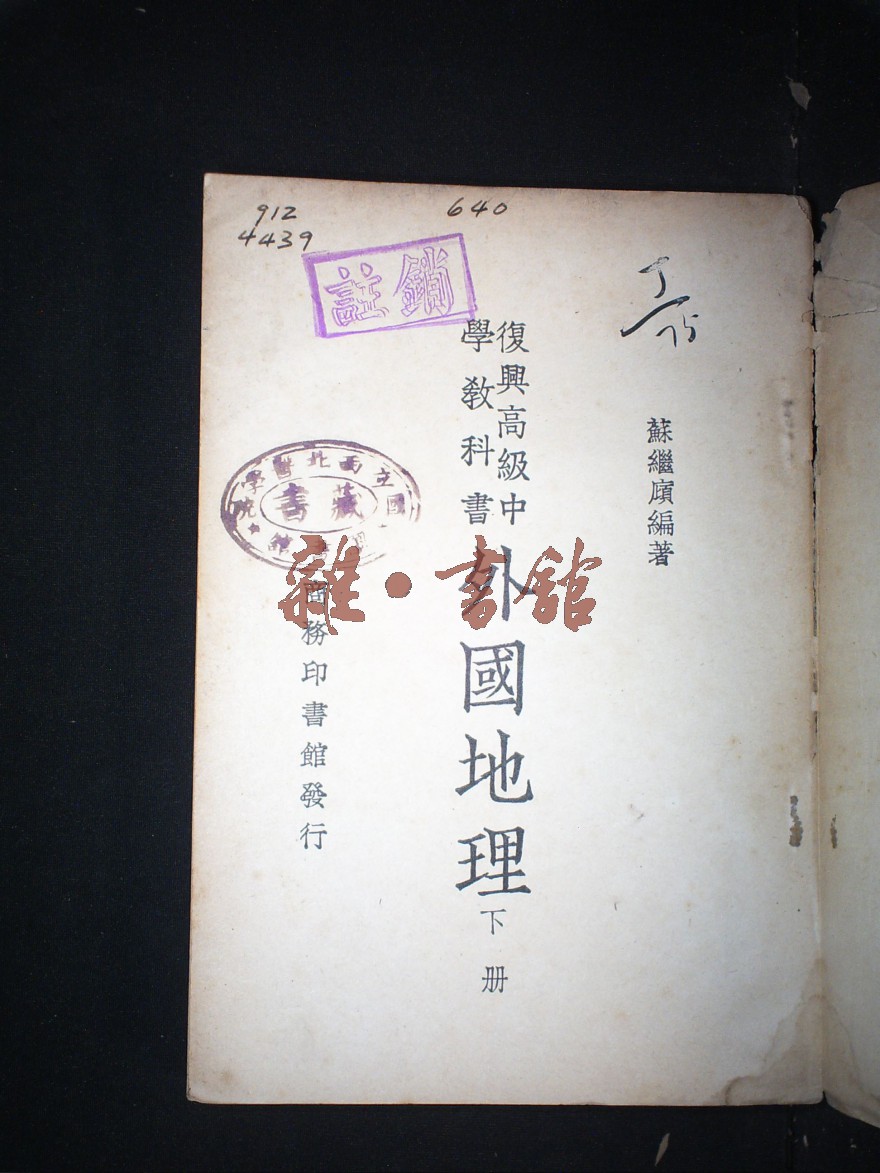 912
4439
640
註銷
蘇繼廎編著
復興高級中
學教科書
外國地理
下册
國立西北醫學院
藏書
商務印書館發行
雜·書舘